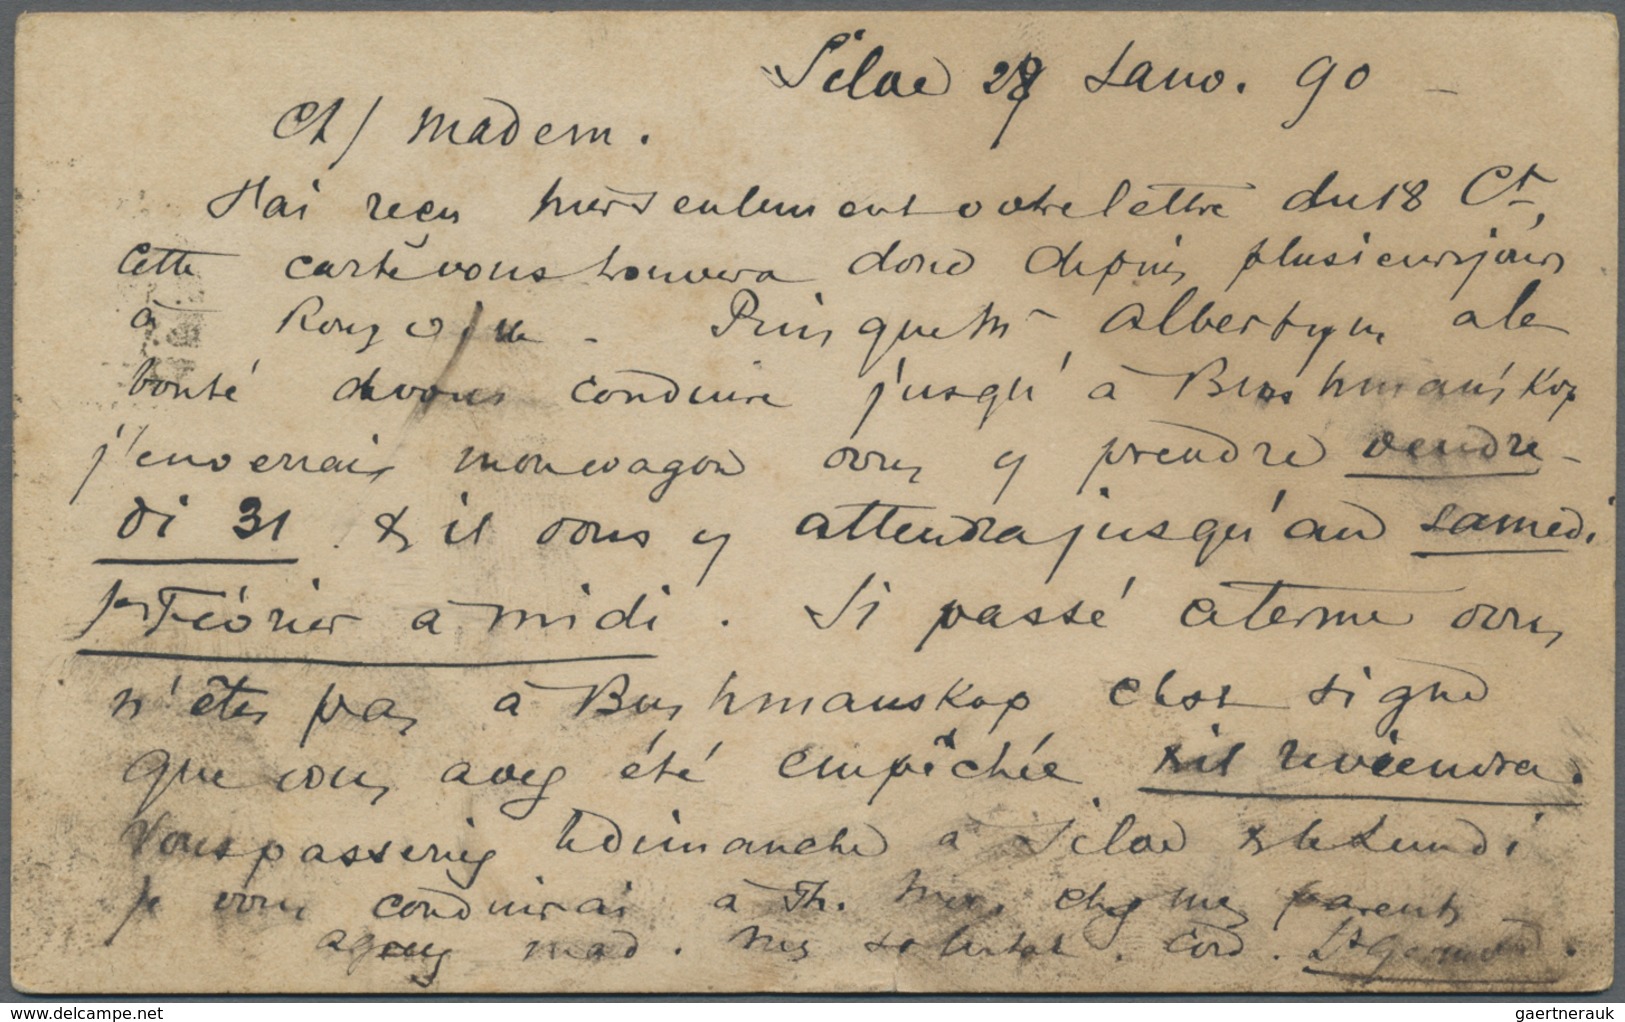 Siloe 28 Janv. 90
Ch/ Madem.
J'ai reçu hier seulement votre lettre du 18 Ct,
Cette carte vous trouvera donc depuis plusieurs jours
à
Puisque Mr Albertyn a la
bonté de vous conduire jusqu'à à Bushman's Kop
j'enverrais mon wagon vous y prendre vendre-
di 31 & il vous y attendra jusqu'au samedi
1er Février à midi. Si passé ce terme vous
n'êtes pas à Bushmanskop c'est signe
que vous avez été empêchée & il reviendra.
Vous passeriez le dimanche à Siloe & le Lundi
je vous conduirai à Th. chez mes parents
agréez mad. mes salutat. cord.
Delcampe.net
gaertnerauk